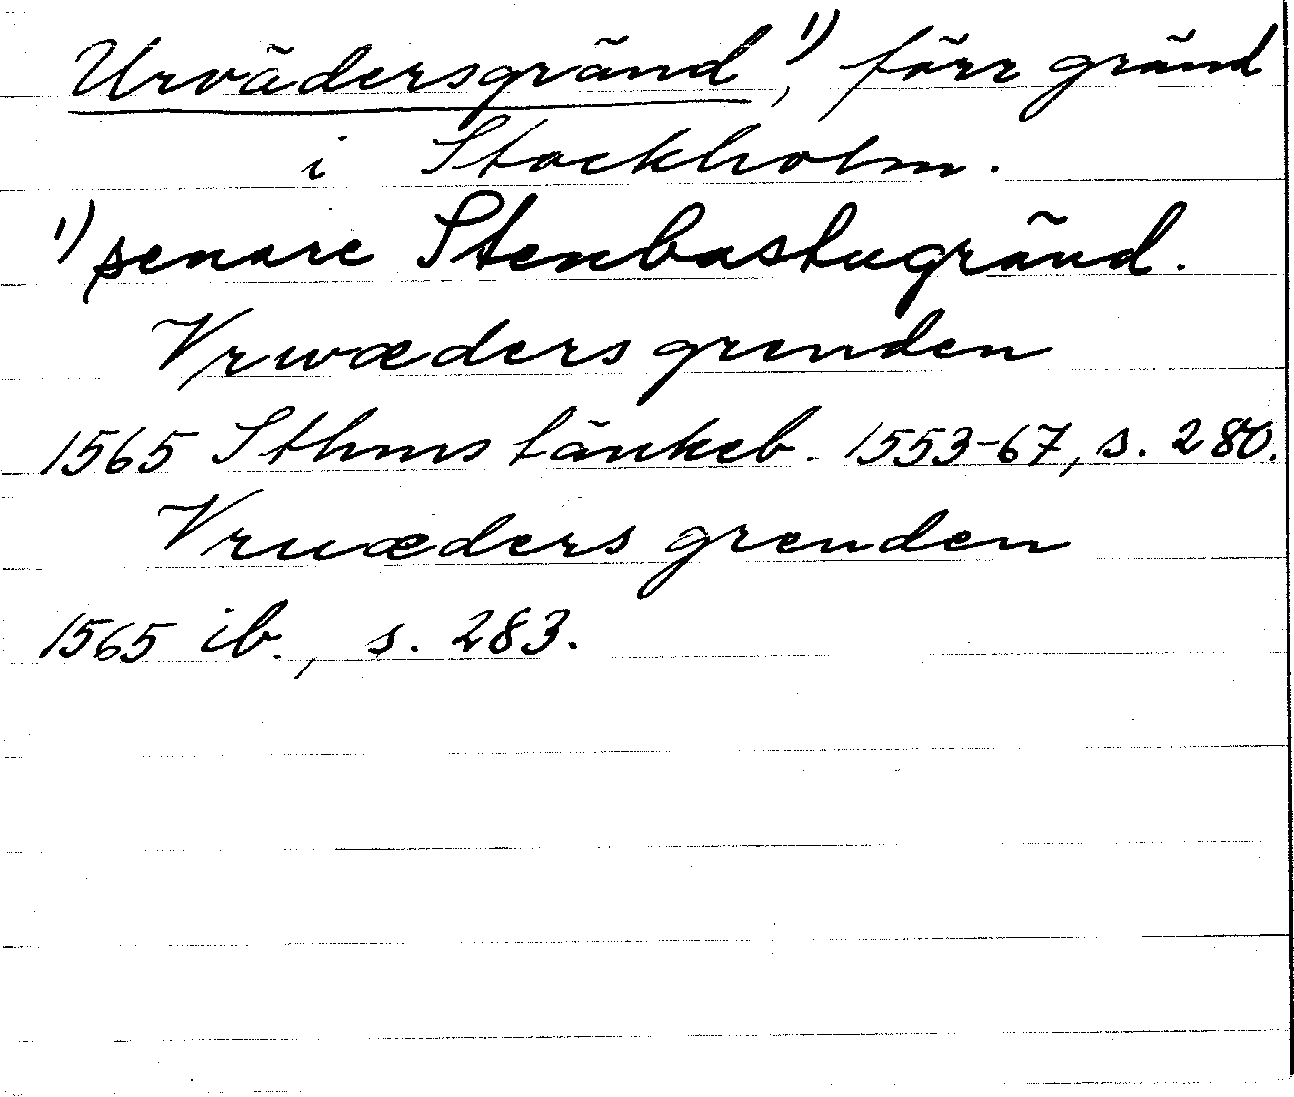 Urvädersgränd,¹⁾ förr gränd
i Stockholm.
¹⁾ senare Stenbastugränd.
Vrwæders grenden
1565 Sthms tänkeb. 1553-67, s. 280.
Vruæders grenden
1565 ib., s. 283.